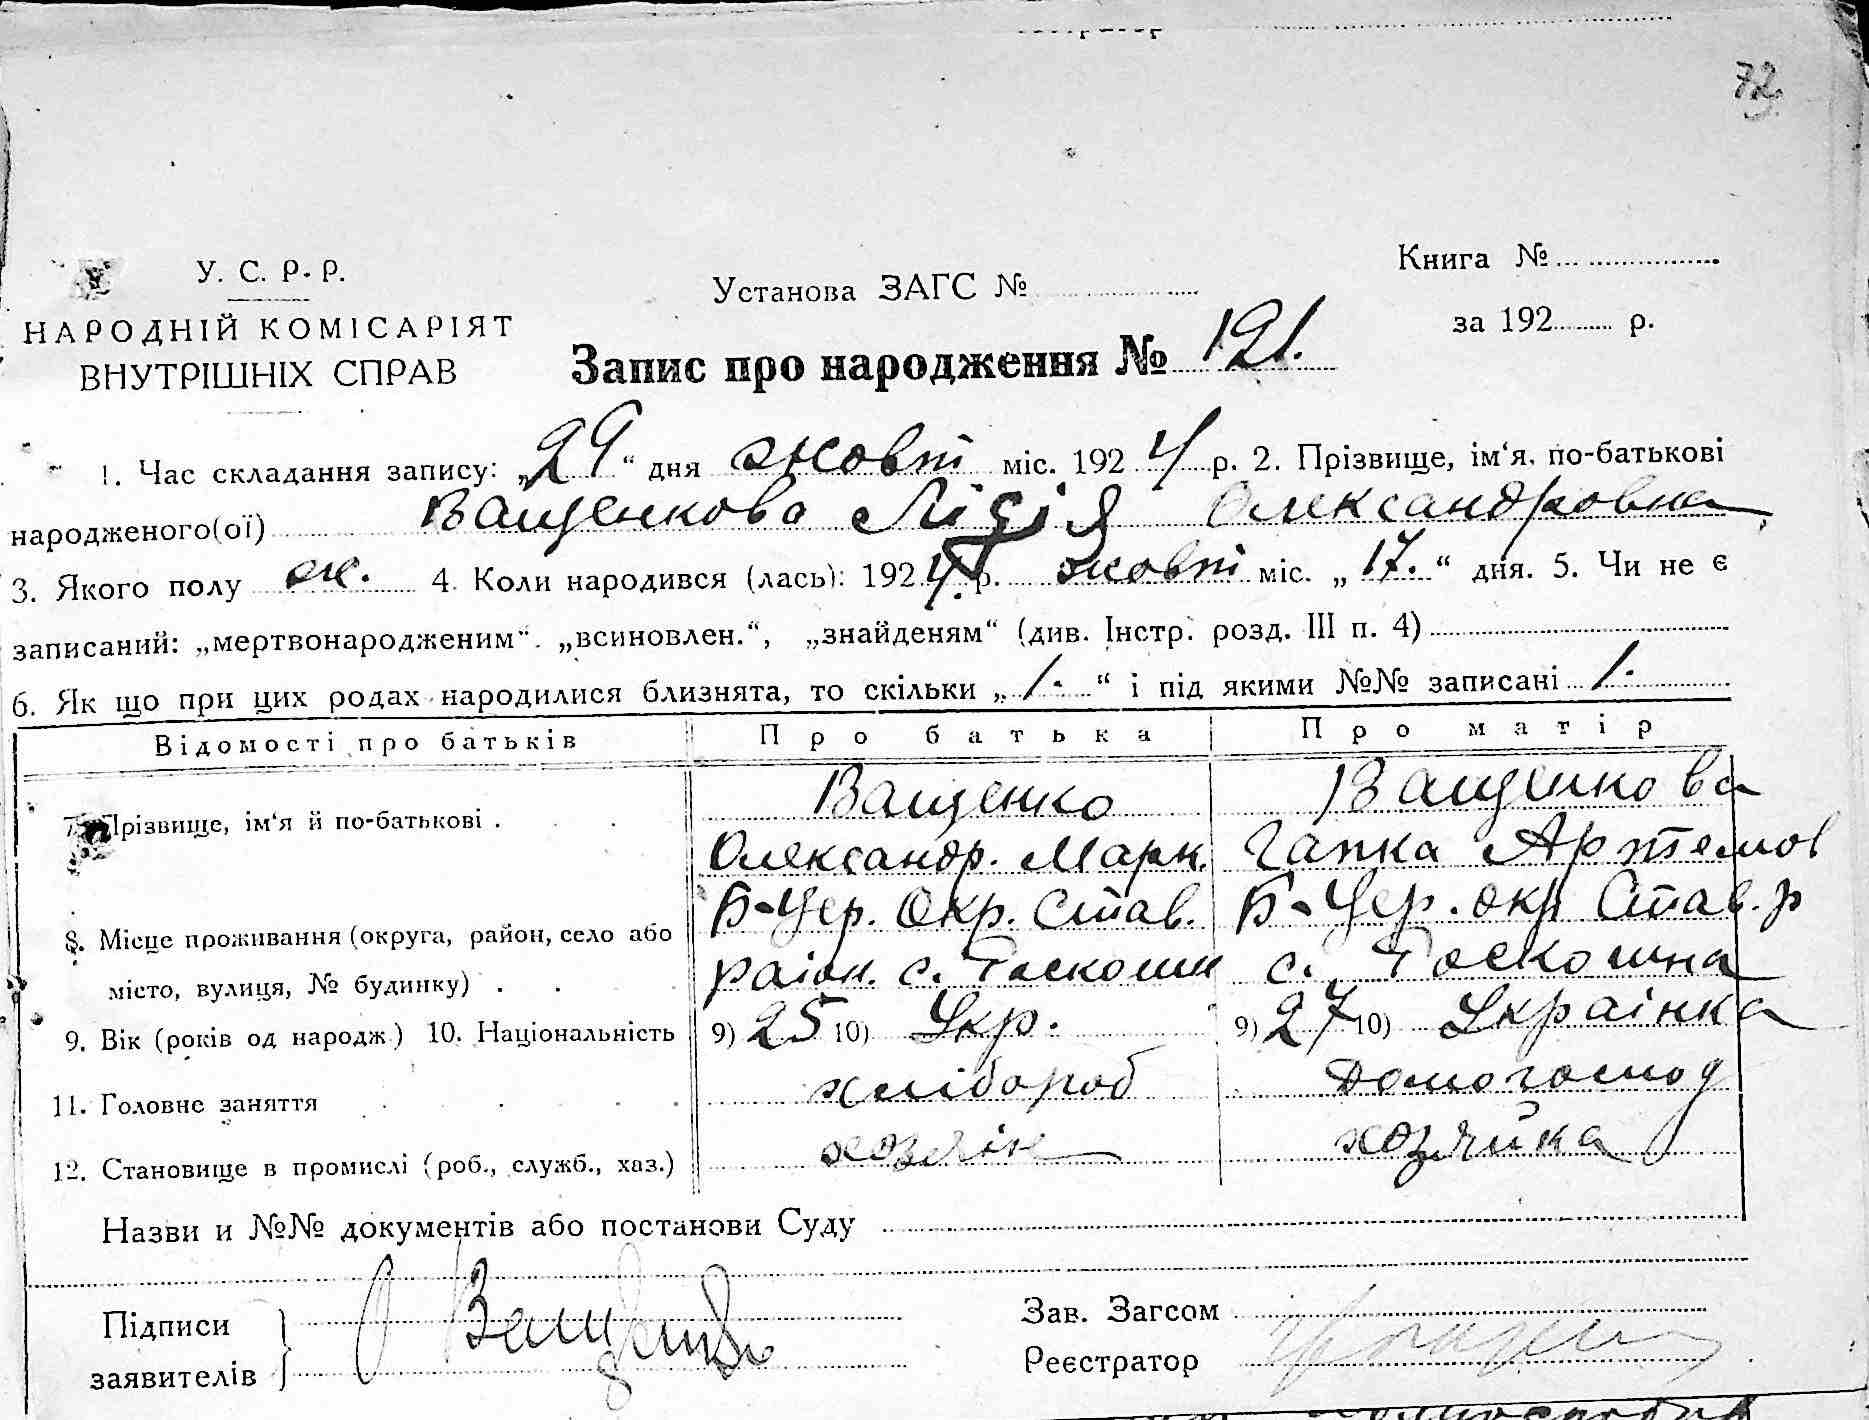 72
У. С. Р. Р.
НАРОДНІЙ КОМІСАРІЯТ
ВНУТРІШНІХ СПРАВ
Установа ЗАГС №
Книга №
за 192 р.
Запис про народження № 191.
1. Час складання запису: „29“ дня жовт міс. 1924 р. 2. Прізвище, ім‘я, по-батькові
народженого(ої) Ващенкова Лідія Олександровна
3. Якого полу ж. 4. Коли народився (лась): 1924 р. жовт міс. „17.“ дня. 5. Чи не є
записаний: „мертвонародженим“. „всиновлен.“, „знайденям“ (див. Інстр. розд. III п. 4)
6. Як що при цих родах народилися близнята, то скільки „1.“ і під якими №№ записані 1.
Відомості про батьків Про батька Про матір
7. Прізвище, ім‘я й по-батькові . Ващенко Ващенкова
Олександр. Марк. Гапка Артемов
8. Місце проживання (округа, район, село або Б-Цер. Окр. Став. Б-Цер. окр Став. р
місто, вулиця, № будинку) . раіон. с. Роскошн с. Роскошна
9. Вік (років од народж.) 10. Національність 9) 25 10) Укр. 9) 27 10) Украінка
11. Головне заняття хлібороб Домогоспод
12. Становище в промислі (роб., служб., хаз.) хозяін хозяйка
Назви и №№ документів або постанови Суду
Підписи
заявителів
Ващенко
Зав. Загсом
Реєстратор